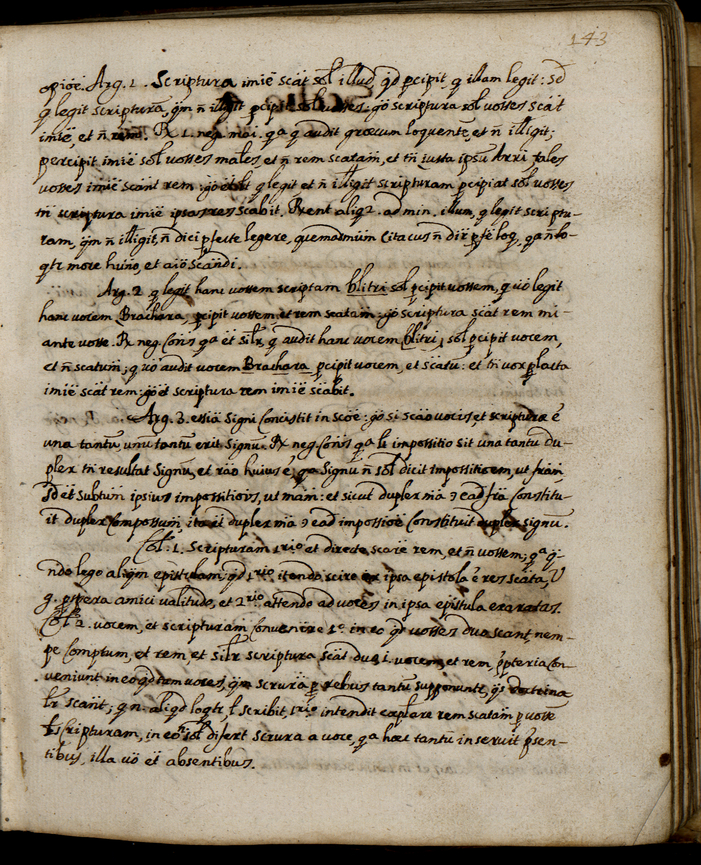 143
opiōe. Arg. 1. Scriptura imiē scāt sōl illud qd pcipit q illam legit: sd
q legit scripturā, qm n̄ illigit pcipit sōl vosses: gō scriptura sōl vosses scāt
imiē, et n̄ rem. R 1. neg. mai. qa q audit græcum loquentē, et n̄ illigit;
percipit imiē sōl vosses males, et n̄ rem scatam, et tn̄ iuxta ipsū Arri tales
vosses imiē scānt rem: gō q legit et n̄ illigit scripturam pcipiat sōl vosses
tn̄ scriptura imiē ipsas res scabit. Rent aliq 2. ad min. illum, q legit scriptu-
ram, qm n̄ illigit, n̄ dici pfecte legere, quemadmūm Citacus n̄ dir pfē loq, qa n̄ lo-
qtr more hūno, et aiō scāndi.
Arg. 2. q legit hanc vossem scriptam blitri sōl pcipit vossem, q vō legit
hanc vocem Brachara, pcipit vossem, et rem scatam: gō scriptura scāt rem mi-
ante vosse. R neg. Cōns qa ēt silr, q audit hanc vocem blitri, sōl pcipit vocem,
et n̄ scatum; q vō audit vocem Brachara pcipit vocem, et scātū: et tn̄ vox plata
imiē scāt rem: gō et scriptura rem imiē scabit.
Arg. 3. essiā signi Consistit in scōe: gō si scāo vocis, et scripturæ ē
una tantū, unū tantū erit signū. R neg. Cōns qa li impossitio sit una tantū du-
plex tn̄ resultat signū, et rāo huius ē, qa signū n̄ sōl dicit impossitioem, ut fram
sd ēt subtum ipsius impossitiōis, ut mam: et sicut duplex mā ɔ ead frā Constitu-
it duplex Compossum, ita ēt duplex mā ɔ ead impossiōe Constituit duplex signū.
Col. 1. Scripturam 1rio et directe scare rem, et n̄ vossem; qa q-
ndo lego aliqm epistulam, qd 1rio itendo scire ex ipsa epistola ē res scāta, V
g. pspera amici valitudo, et 2rio attendo ad voces in ipsa epistula exaratas.
Col. 2. vocem, et scripturam Convenire 1o. in eo qd vosses dua scant, nem-
pe Comptum, et rem, et silr scriptura scāt dua .i. vocem, et rem, ppteria Con-
veniunt in eo qd tam voces, qm scrura p rebus tantū supponunt, qs doctrina
lr scant; q n. aliqd loqtr, l scribit, 1rio intendit explere rem scatam p vosse
l scripturam, in eo sōl difert scrura a voce, qa hæc tantū inservit psen-
tibus, illa vō et absentibus.